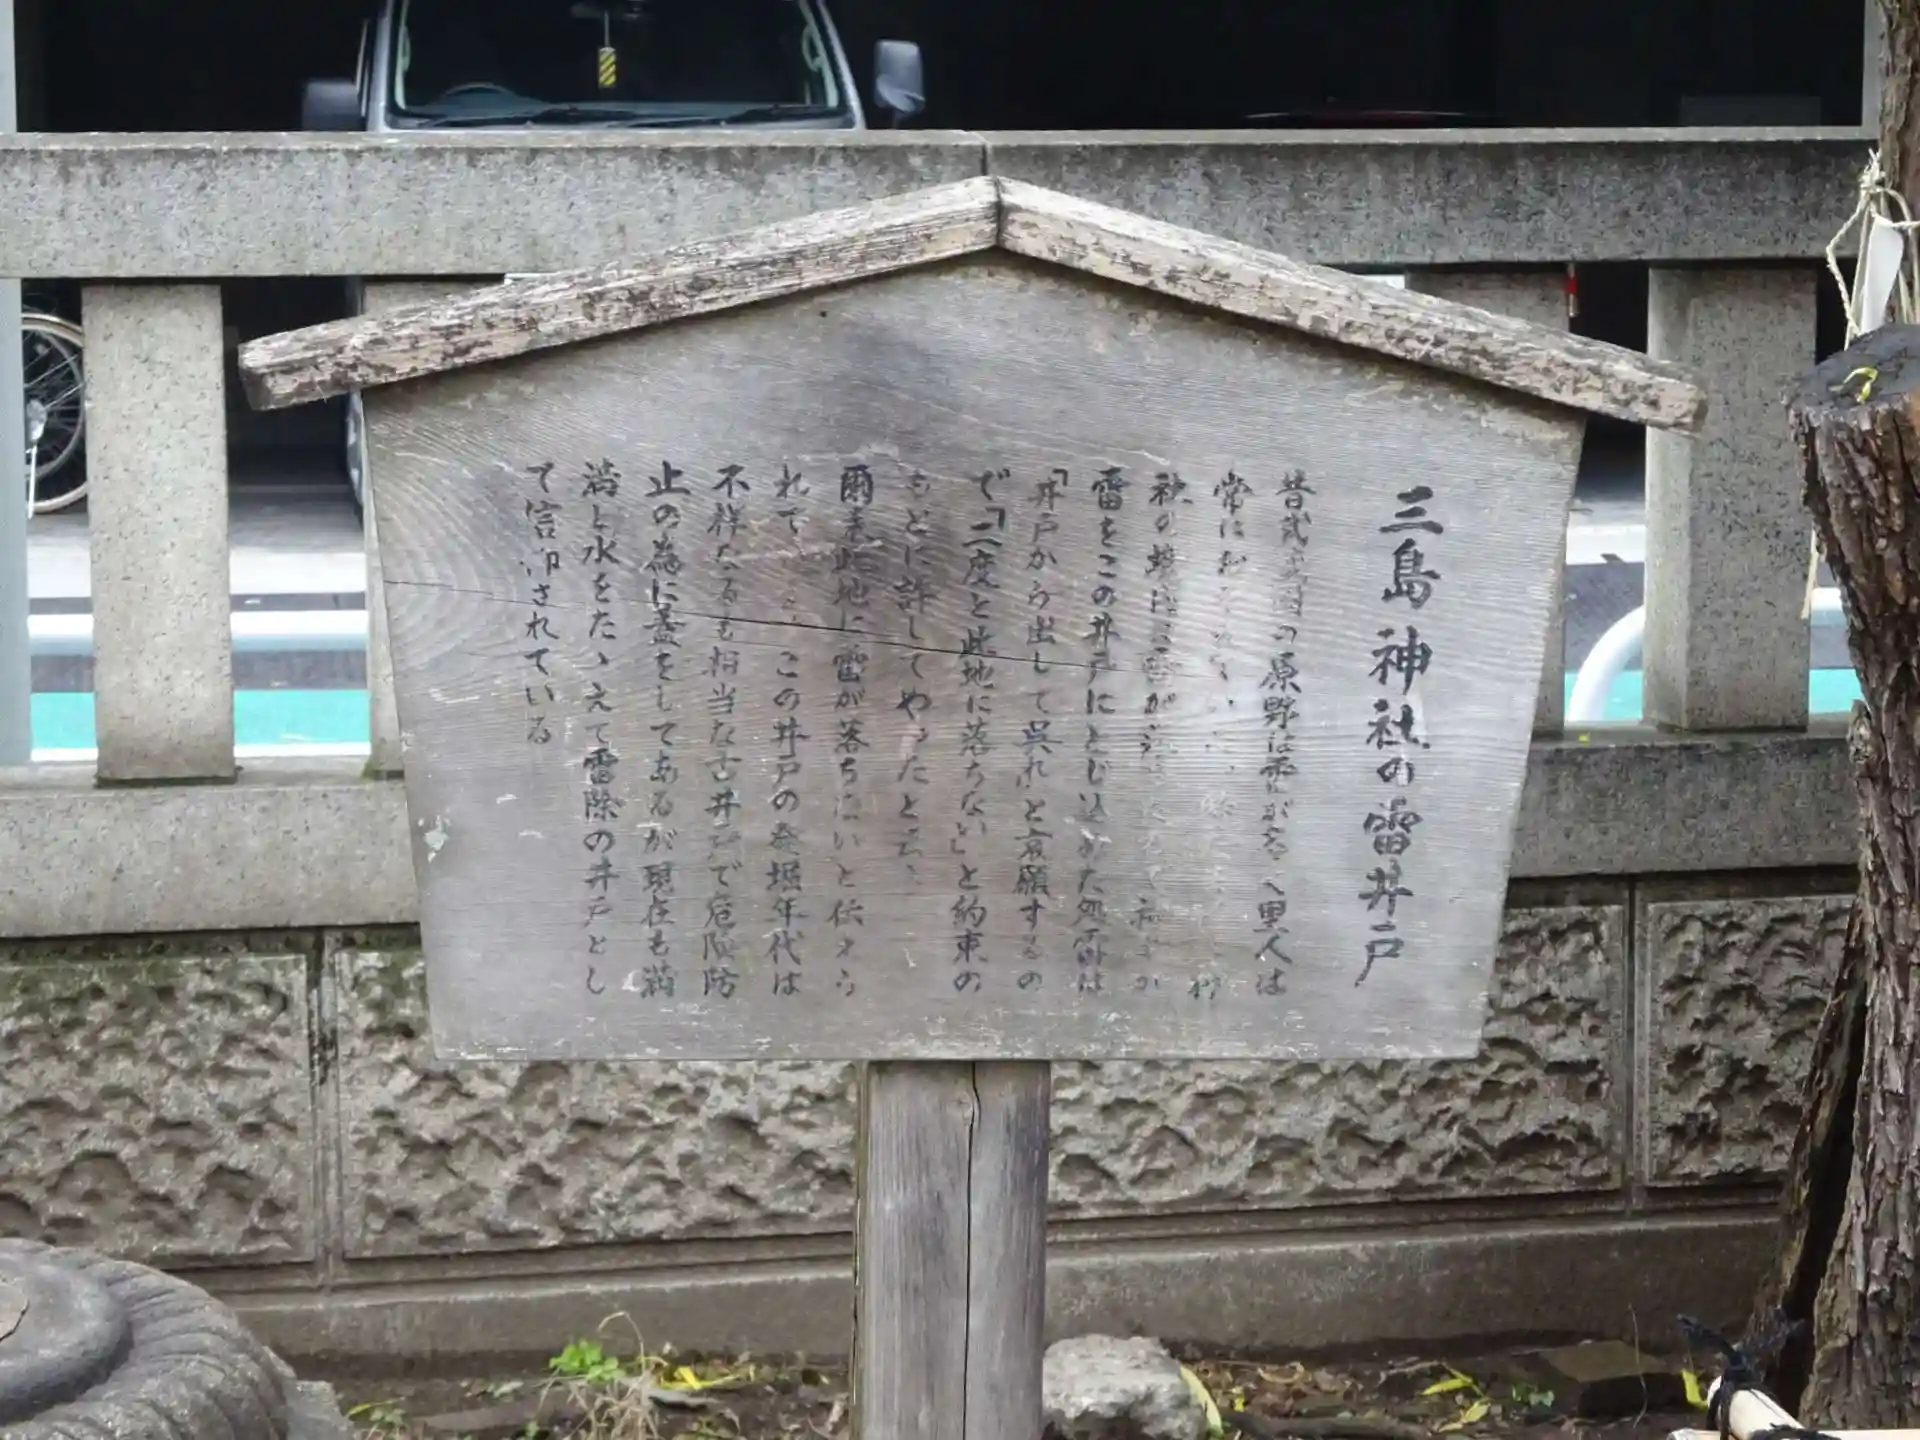 三島神社の雷井戸
昔武蔵国の原野は雷が多く里人は
常にお
社の 雷が
雷をこの井戸にとじ込めた処雷は
「井戸から出して呉れ」と哀願するの
で「二度と此地に落ちない」と約束の
もとに許してやったと云う
爾来此地に雷が落ちないと伝えら
れて この井戸の発掘年代は
不祥なるも相当な古井戸で危険防
止の為に蓋をしてあるが現在も満
満と水をたゝえて雷除の井戸とし
て信仰されている